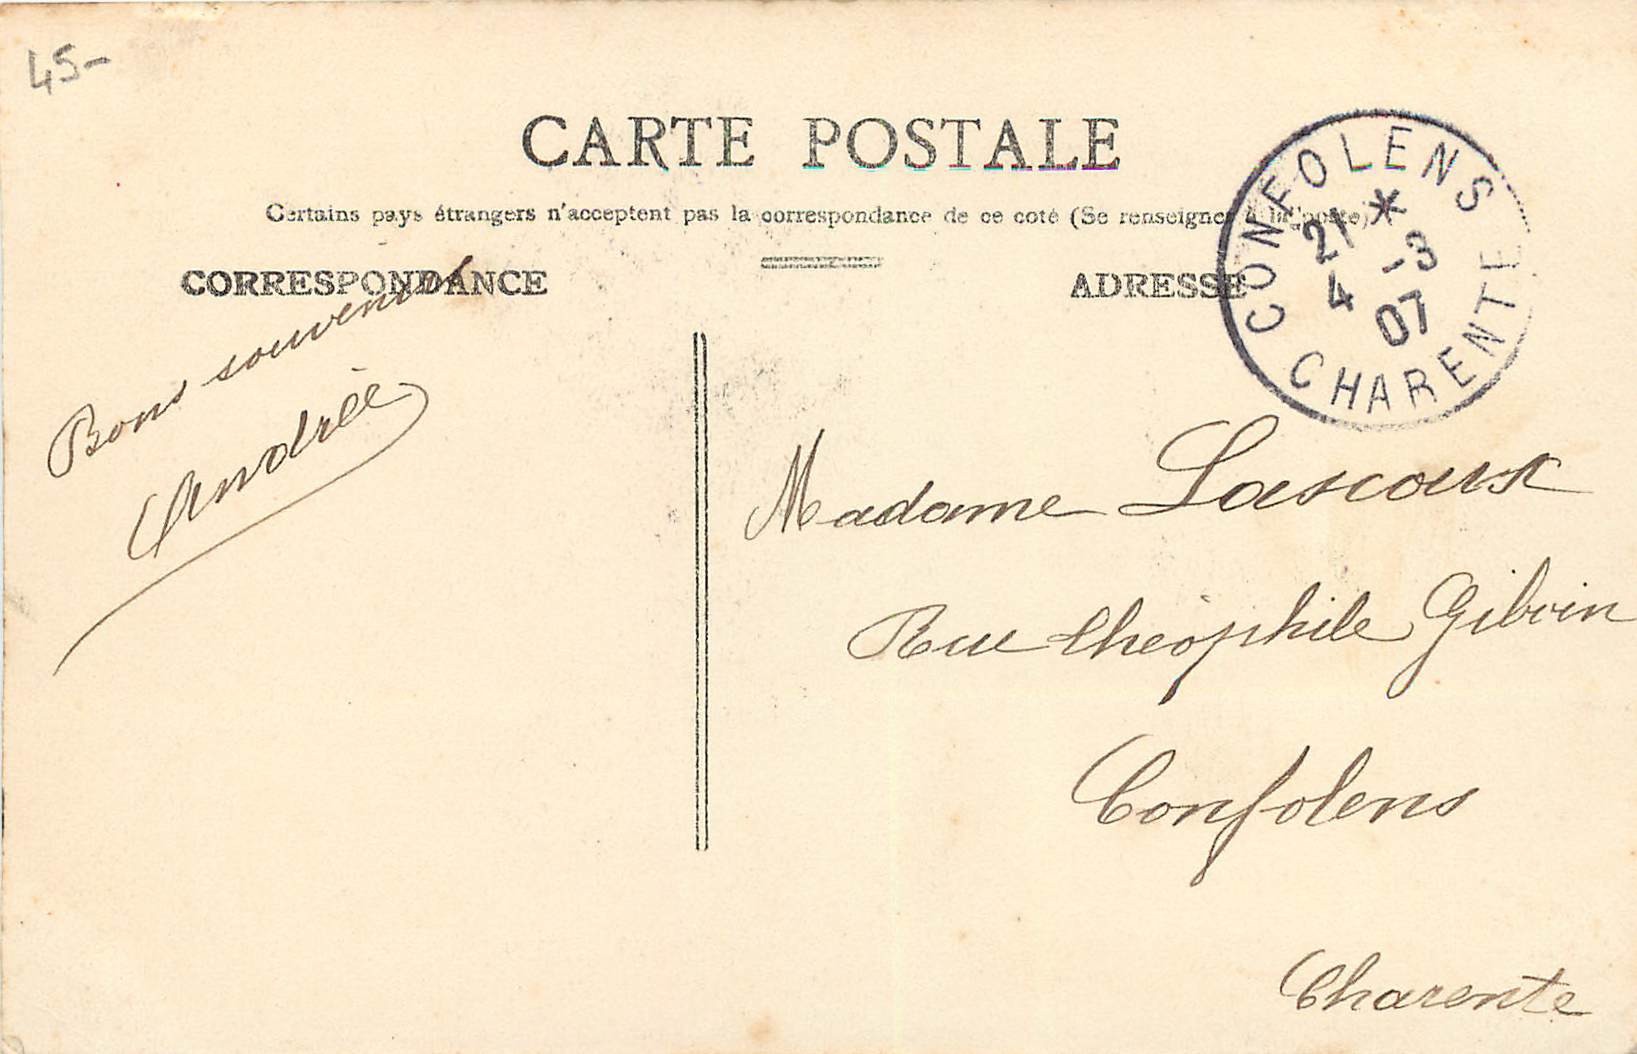 45-
CARTE POSTALE
Certains pays étrangers n'acceptent pas la correspondance de ce coté (Se renseigner à la poste)
CORRESPONDANCE
ADRESSE
CONFOLENS
*
21 -3
4 07
CHARENTE
Bons souvenirs
Andrée
Madame Lascoux
Rue théophile Giboin
Confolens
Charente